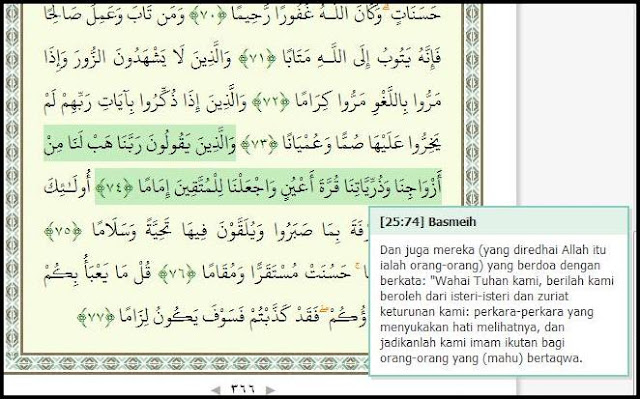 حَسَنَاتٍ ۗ وَكَانَ اللَّـهُ غَفُورًا رَّحِيمًا ﴿٧٠﴾ وَمَن تَابَ وَعَمِلَ صَالِحًا
فَإِنَّهُ يَتُوبُ إِلَى اللَّـهِ مَتَابًا ﴿٧١﴾ وَالَّذِينَ لَا يَشْهَدُونَ الزُّورَ وَإِذَا
مَرُّوا بِاللَّغْوِ مَرُّوا كِرَامًا ﴿٧٢﴾ وَالَّذِينَ إِذَا ذُكِّرُوا بِآيَاتِ رَبِّهِمْ لَمْ
يَخِرُّوا عَلَيْهَا صُمًّا وَعُمْيَانًا ﴿٧٣﴾ وَالَّذِينَ يَقُولُونَ رَبَّنَا هَبْ لَنَا مِنْ
أَزْوَاجِنَا وَذُرِّيَّاتِنَا قُرَّةَ أَعْيُنٍ وَاجْعَلْنَا لِلْمُتَّقِينَ إِمَامًا ﴿٧٤﴾ أُولَـٰئِكَ
بِمَا صَبَرُوا وَيُلَقَّوْنَ فِيهَا تَحِيَّةً وَسَلَامًا ﴿٧٥﴾
حَسُنَتْ مُسْتَقَرًّا وَمُقَامًا ﴿٧٦﴾ قُلْ مَا يَعْبَأُ بِكُمْ
فَقَدْ كَذَّبْتُمْ فَسَوْفَ يَكُونُ لِزَامًا ﴿٧٧﴾
[25:74] Basmeih
Dan juga mereka (yang diredhai Allah itu
ialah orang-orang) yang berdoa dengan
berkata: "Wahai Tuhan kami, berilah kami
beroleh dari isteri-isteri dan zuriat
keturunan kami: perkara-perkara yang
menyukakan hati melihatnya, dan
jadikanlah kami imam ikutan bagi
orang-orang yang (mahu) bertaqwa.
٣٦٦